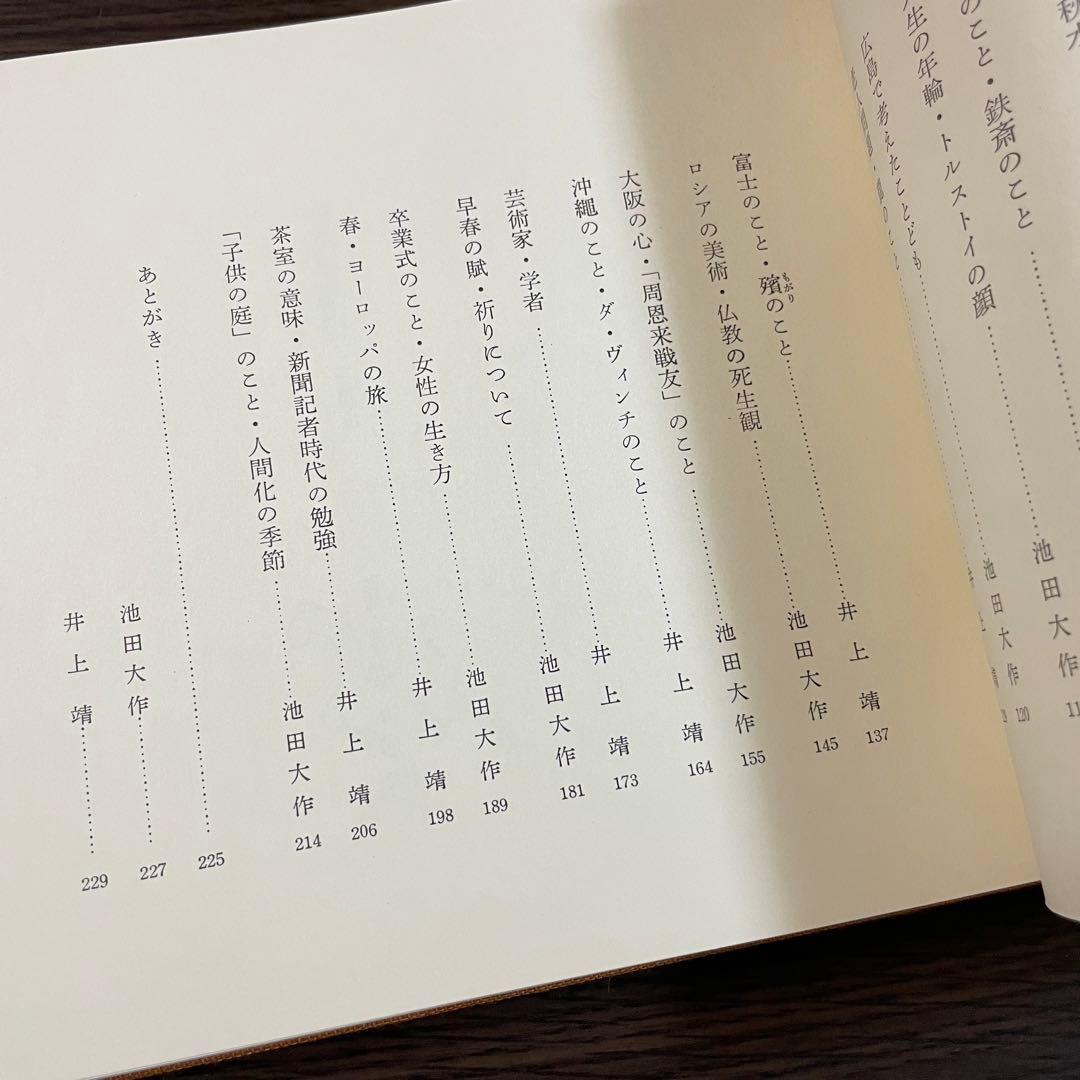 のこと・鉄斎のこと……池田大作
生の年輪・トルストイの顔……池田大作 120
広島で考えたことども……
富士のこと・殯(もがり)のこと……井上靖 137
ロシアの美術・仏教の死生観……池田大作 145
大阪の心・「周恩来戦友」のこと……池田大作 155
沖繩のこと・ダ・ヴィンチのこと……井上靖 164
芸術家・学者……井上靖 173
早春の賦・祈りについて……池田大作 181
卒業式のこと・女性の生き方……池田大作 189
春・ヨーロッパの旅……井上靖 198
茶室の意味・新聞記者時代の勉強……井上靖 206
「子供の庭」のこと・人間化の季節……池田大作 214
あとがき……225
池田大作……227
井上靖……229